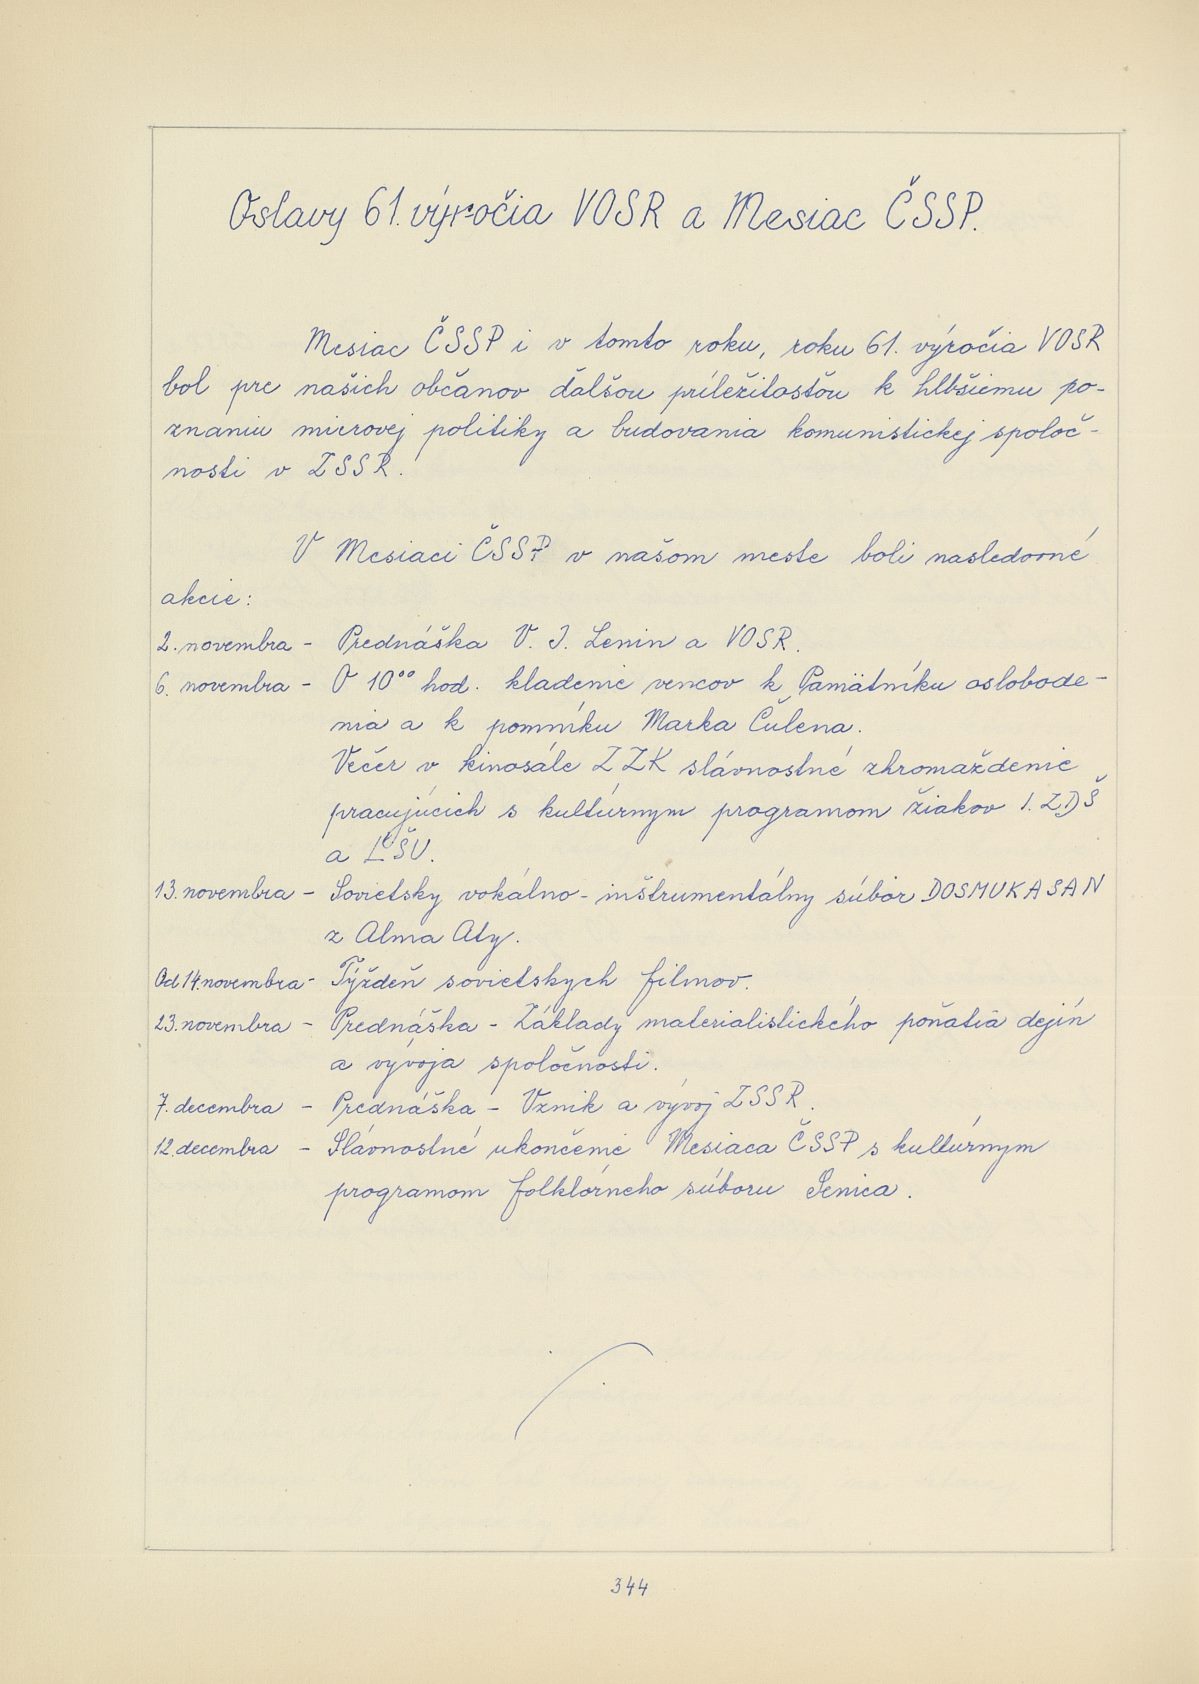 Oslavy 61. výročia VOSR a Mesiac ČSSP.
Mesiac ČSSP i v tomto roku, roku 61. výročia VOSR
bol pre našich občanov ďalšou príležitosťou k hlbšiemu po-
znaniu mierovej politiky a budovania komunistickej spoloč-
nosti v ZSSR.
V Mesiaci ČSSP v našom meste boli nasledovné
akcie:
2. novembra - Prednáška V. I. Lenin a VOSR.
6. novembra - O 10⁰⁰ hod. kladenie vencov k Pamätníku oslobode-
nia a k pomníku Marka Čulena.
Večer v kinosále ZZK slávnostné zhromaždenie
pracujúcich s kultúrnym programom žiakov 1. ZDŠ
a ĽŠU.
13. novembra - Sovietsky vokálno-inštrumentálny súbor DOSMUKASAN
z Alma Aty.
Od 14. novembra - Týždeň sovietskych filmov.
23. novembra - Prednáška - Základy materialistického poňatia dejín
a vývoja spoločnosti.
7. decembra - Prednáška - Vznik a vývoj ZSSR.
12. decembra - Slávnostné ukončenie Mesiaca ČSSP s kultúrnym
programom folklórneho súboru Senica.
344